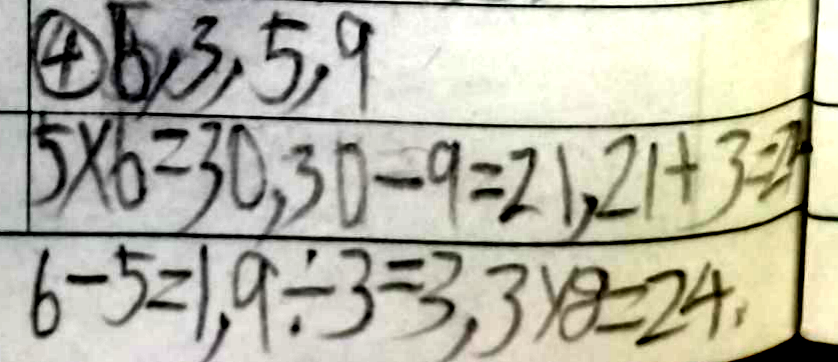 ④6,3,5,9
5×6=30,30-9=21,21+3=24
6-5=1,9÷3=3,3×8=24.